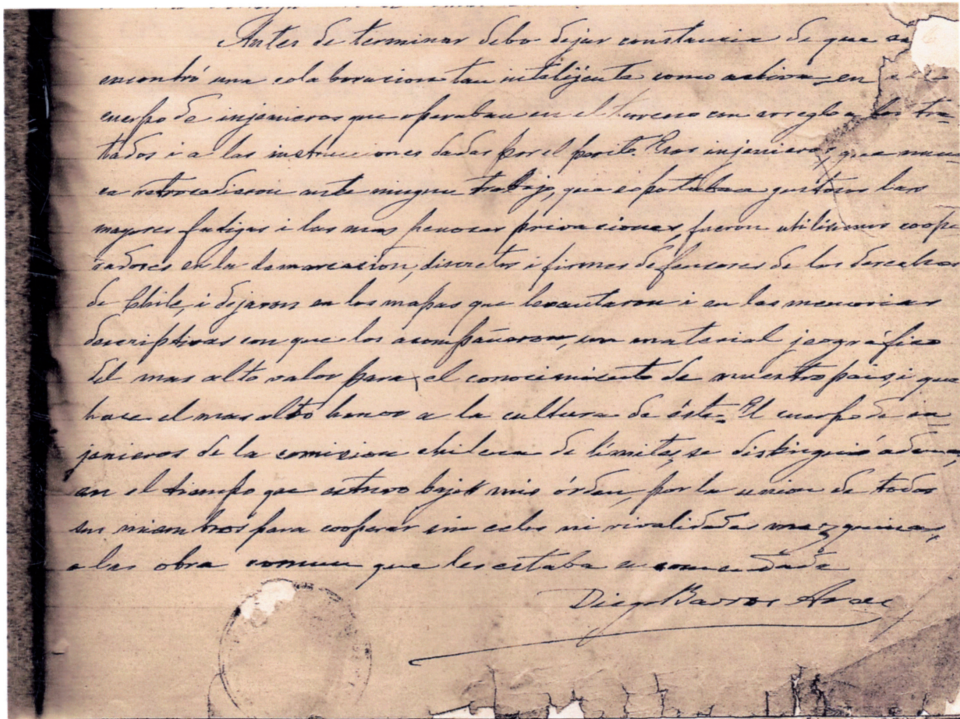 Antes de terminar debo dejar constancia de que
encontró una colaboracion tan intelijente como activa en
cuerpo de injenieros que operaban en el terreno con arreglo a los tra-
tados i a las instrucciones dadas por el perito. Esos injenieros, que nun
ca retrocedieron ante ningun trabajo, que soportaban gustosos las
mayores fatigas i las mas penosas privaciones, fueron utilísimos coope
radores en la demarcacion, discretos i firmes defensores de los derechos
de Chile, i dejaron en los mapas que levantaron i en las memorias
descriptivas con que los acompañaron, un material jeográfico
del mas alto valor para el conocimiento de nuestro pais, i que
hace el mas alto honor a la cultura de éste. El cuerpo de in
jenieros de la comision chilena de límites, se distinguió ademas,
en el tiempo que estuvo bajo mis órden, por la union de todos
sus miembros para cooperar sin celos ni rivalidades mezquinas,
a las obra comun que les estaba encomendada
Diego Barros Arana